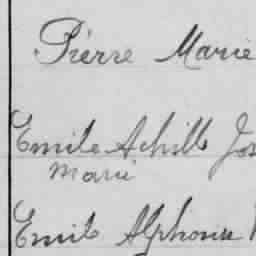 Pierre Marie
Emile Achille Jos
Marie
Emile Alphonse